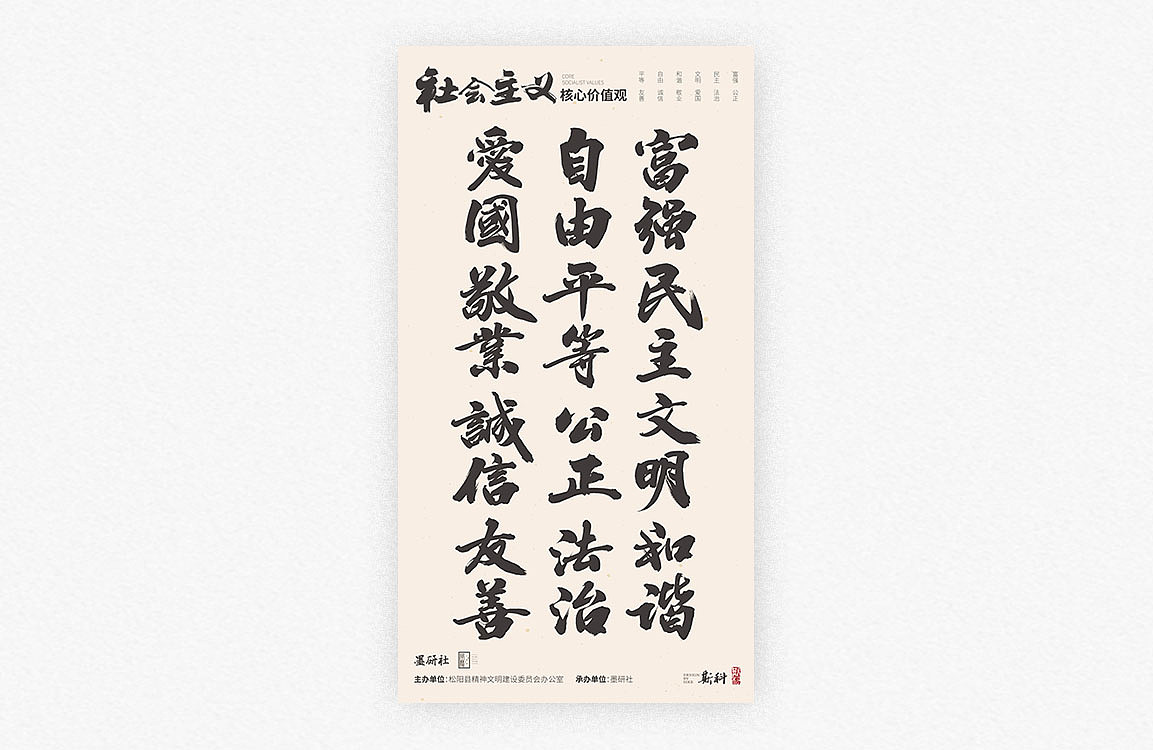 社会主义
CORE
SOCIALIST VALUES
核心价值观
富强 公正
民主 法治
文明 爱国
和谐 敬业
自由 诚信
平等 友善
富强民主文明和谐
自由平等公正法治
愛國敬業誠信友善
墨研社
主办单位：松阳县精神文明建设委员会办公室 承办单位：墨研社
斯科